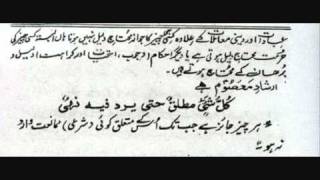 عبادات اور دینی معاملات کے علاوہ کسی چیز کا جواز محتاج دلیل نہیں ہوتا ہاں البتہ کسی چیز کی
حرمت محتاج دلیل ہوتی ہے یا دیگر احکام (وجوب، استحباب اور کراہت) دلیل و
برھان کے محتاج ہوتے ہیں۔
ارشادِ معصومؑ ہے
كُلُّ شَئٍ مطلق حتى يرد فيه نهى
"ہر چیز جائز ہے جب تک اُس کے متعلق کوئی (شرعی) ممانعت وارد
نہ ہو"